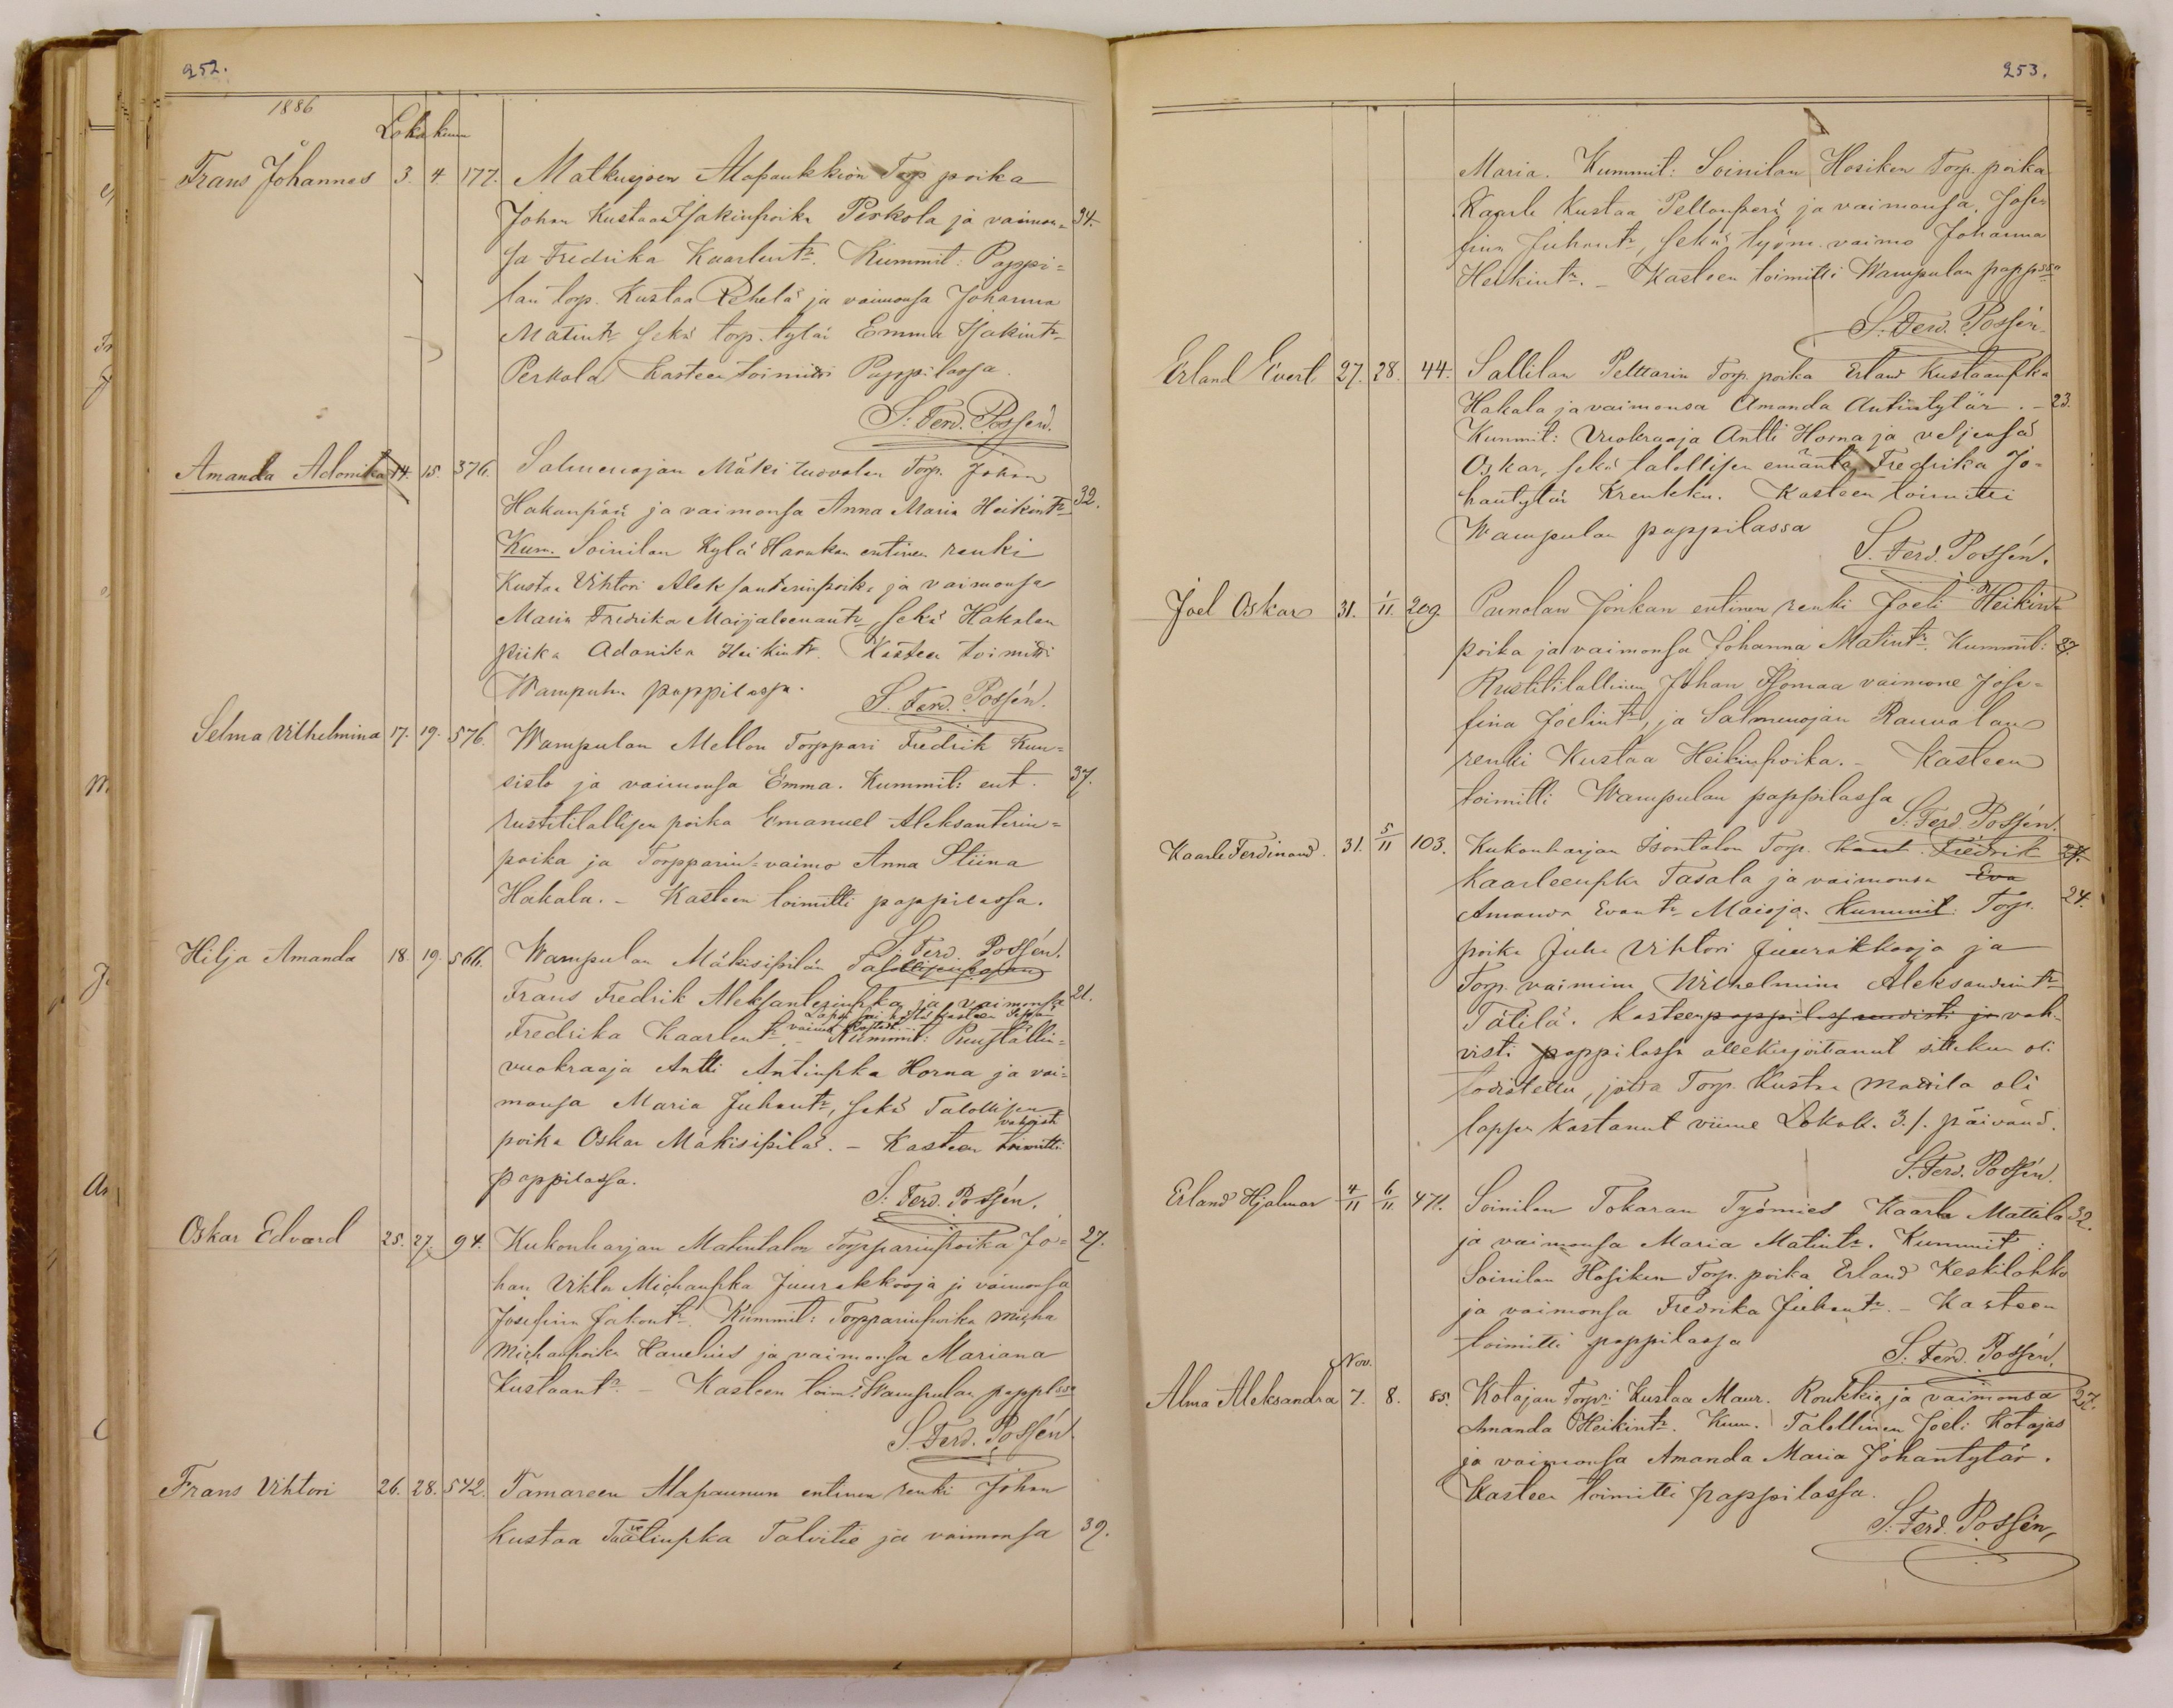 252.
1886
Lokakuun
Frans Johannes 3. 4 177. Matkusjoen Alapaukkion Torp poika
Johan Kustaa Isakinpoika Perkola ja vaimon= 34.
sa Fredrika Kaarlentr. Kummit: Pappi=
lan torp. Kustaa Rehelä ja vaimonsa Johanna
Matintr sekä torp. tytär Emma Isakintr
Perkola Kasteen toimitti Pappilassa.
S: Ferd. Possén.
Amanda Adonika 14. 15. 376. Salmenojan Mäki Torp. Johan
Hakanpää ja vaimonsa Anna Maria Heikintr 32.
Kum. Soinilan Kylä Hanukan entinen renki
Kustaa Vihtori Aleksanterinpoika ja vaimonsa
Maria Fredrika Maijaleenantr, sekä Hakalan
piika Adonika Heikintr. Kasteen toimitti
Wampulan pappilassa. S. Ferd. Possén.
Selma Vilhelmina 17. 19. 576. Wampulan Mellon Torppari Fredrik Kun=
sisto ja vaimonsa Emma. Kummit: ent. 37.
rustitilallisen poika Emanuel Aleksanterin=
poika ja Torpparin=vaimo Anna Stiina
Hakala. – Kasteen toimitti pappilassa.
S. Ferd. Possén.
Hilja Amanda 18. 19. 566. Wampulan Mäkisipilän Talollisenpojan
Frans Fredrik Aleksanterinpka ja vaimonsa 21.
Lapsi sai hätäkasteen
Fredrika Kaarlentr. – Kummit:
vuokraaja Antti Antinpka Horna ja vai=
monsa Maria Juhantr, sekä Talollisen
vahvisti
poika Oskar Mäkisipilä. – Kasteen toimitti
pappilassa.
S: Ferd. Possén.
Oskar Edvard 25. 27. 94. Kukonharjan Matintalon Torpparinpoika Jo= 27.
han Viktor Michanpka Juurakkooja ja vaimonsa
Josefina Jakontr. Kummit: Torpparinpoika Micha
Michanpoika Hanelius ja vaimonsa Mariana
Kustaantr. – Kasteen toim: Wampulan pappilssa
S. Ferd. Possén
Frans Vihtori 26. 28. 542. Tamareen Alapaunun entinen renki Johan
Kustaa Taavetinpka Talvitie ja vaimonsa 39.
253.
Maria. Kummit: Soinilan Hosiken Torp. poika
Kaarle Kustaa Pellonperä ja vaimonsa, Jose=
fina Juhantr, sekä työm. vaimo Johanna
Heikintr. – Kasteen toimitti Wampulan pappssa
S. Ferd. Possén.
Erland Evert 27. 28. 44. Sallilan Pelttarin Torp. poika Erland Kustaanpka
Hakala ja vaimonsa Amanda Antintytär. – 23.
Kummit: Vuokraaja Antti Horna ja veljensä
Oskar, sekä talollisen emäntä Fredrika Jo=
hantytär Krenkku. Kasteen toimitti
Wampulan pappilassa
S. Ferd. Possén.
Joel Oskar 31. 1/11. 209. Parnolan Jonkan entinen renki Joeli Heikin
poika ja vaimonsa Johanna Matintr. Kummit: 27.
Rustitilallinen Johan Isomaa vaimone Jose=
fina Joelintr, ja Salmenojan Rauvolan
renki Kustaa Heikinpoika. – Kasteen
toimitti Wampulan pappilassa
S. Ferd. Possén.
Kaarle Ferdinand. 31. 5/11 103. Kukonharjan Isontalon Torp. Fredrik
Kaarleenpka Tasala ja vaimonsa Eva
Amanda Evantr Maisja. Kummit: Torp. 24.
poika Juha Vihtori Juurakkooja ja
Torp. vaimine Wilhelmina Aleksandrintr
Tätilä. Kasteen vah-
visti pappilassa allekirjoittanut sitteku oli
todistettu, jotta Torp. Kustaa Mattila oli
lapsen kastanut viime Lokak. 31. päivänä.
S. Ferd. Possén.
Erland Hjalmar 4/11 6/11. 471. Soinilan Tokaran Työmies Kaarle Mattila 32.
ja vaimonsa Maria Matintr. Kummit:
Soinilan Hosiken Torp. poika Erland Keskilohko
ja vaimonsa Fredrika Juhantr. – Kasteen
toimitti pappilassa
S. Ferd. Possén.
Nov.
Alma Aleksandra 7. 8. 85. Kotajan Torpri Kustaa Maur. Roukkio ja vaimonsa 27.
Amanda Heikintr. Kum. Talollinen Joeli Kotajas
ja vaimonsa Amanda Maria Johantytär.
Kasteen toimitti pappilassa.
S: Ferd. Possén,